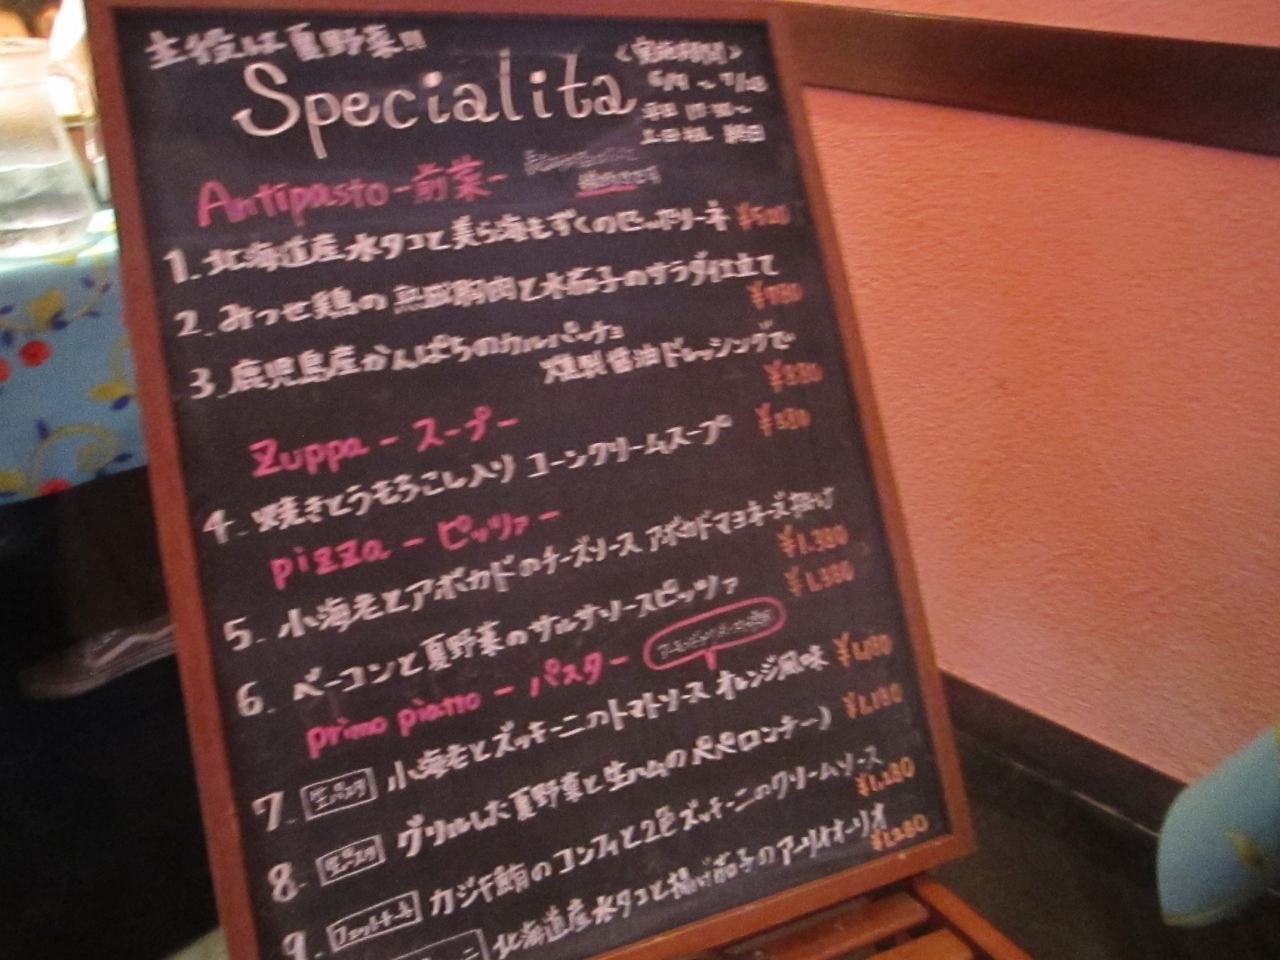 主役は夏野菜!!
Specialita
<実施期間>
土日祝 終日
Antipasto-前菜-
1. 北海道産水タコと美ら海もずくのゼッポリーネ
2. みつせ鶏の熟成胸肉と水茄子のサラダ仕立て
¥780
3. 鹿児島産かんぱちのカルパッチョ
燻製醤油ドレッシングで
Zuppa-スープ-
4. 焼きとうもろこし入り コーンクリームスープ
pizza-ピッツァ-
5. 小海老とアボカドのチーズソース アボカドマヨネーズ掛け
¥1,380
6. ベーコンと夏野菜のサルサソースピッツァ ¥1,380
primo piatto-パスタ-
7. 生パスタ 小海老とズッキーニのトマトソース オレンジ風味 ¥1,180
8. 生パスタ グリルした夏野菜と生ハムのペペロンチーノ ¥1,180
9. フェットチーネ カジキ鮪のコンフィと2色ズッキーニのクリームソース
¥1,280
北海道産水タコと揚げ茄子のアーリオオーリオ
¥1,280